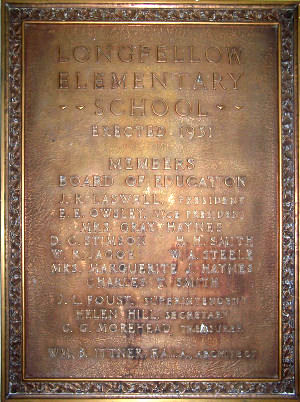 LONGFELLOW
ELEMENTARY
SCHOOL
ERECTED 1931
MEMBERS
BOARD OF EDUCATION
J. R. LASWELL, PRESIDENT
E. E. OWSLEY, VICE PRESIDENT
MRS. GRAY HAYNES
D. C. STIMSON M. H. SMITH
W. R. JAGOE W. A. STEELE
MRS. MARGUERITE J. HAYNES
CHARLES SMITH
J. L. FOUST, SUPERINTENDENT
HELEN HILL, SECRETARY
C. G. MOREHEAD, TREASURER
WM. B. ITTNER, F.A.I.A., ARCHITECT